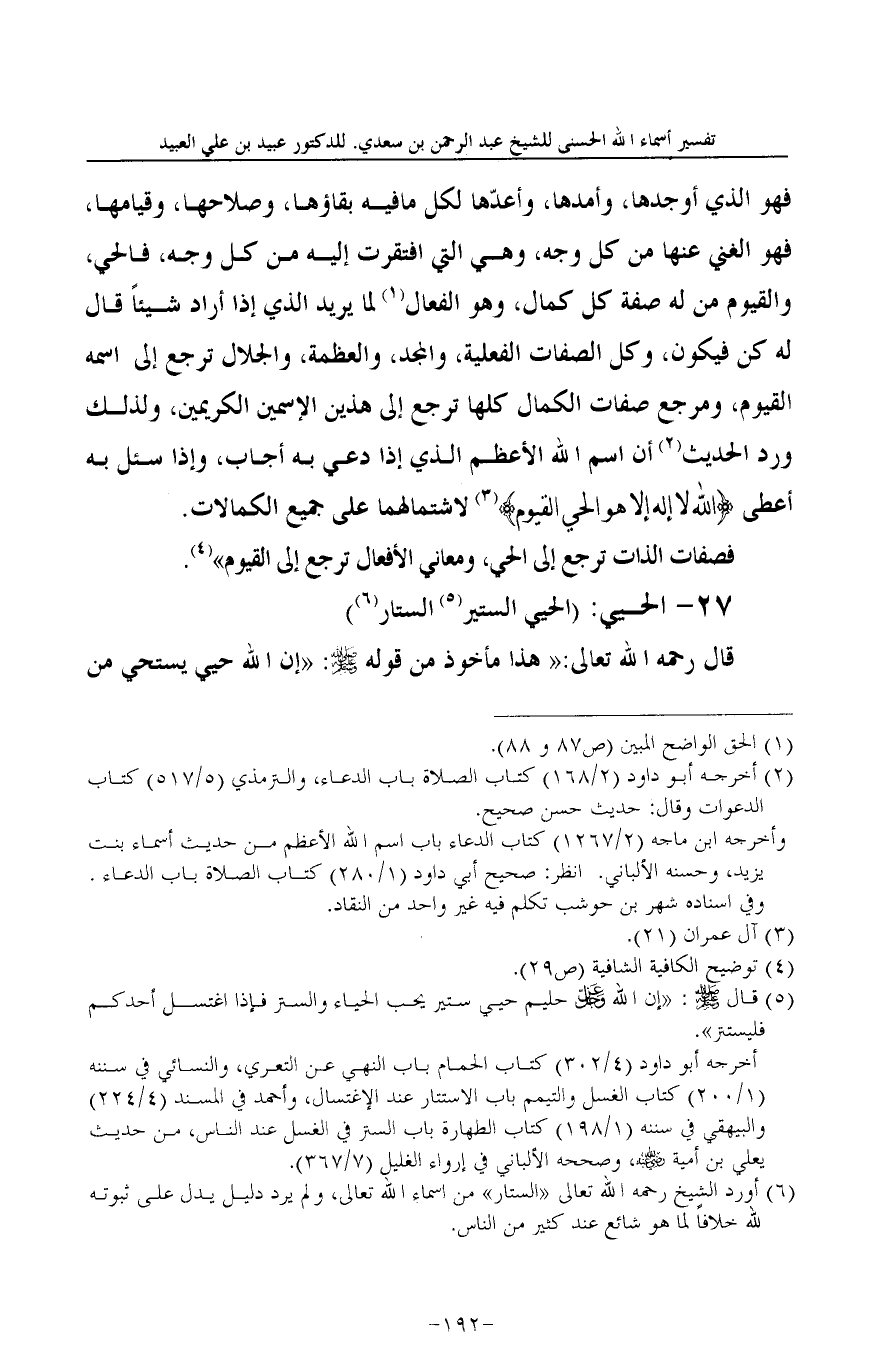 تفسير أسماء الله الحسنى للشيخ عبد الرحمن بن سعدي. للدكتور عبيد بن علي العبيد
فهو الذي أوجدها، وأمدها، وأعدّها لكل مافيه بقاؤها، وصلاحها، وقيامها،
فهو الغني عنها من كل وجه، وهي التي افتقرت إليه من كل وجه، فالحي،
والقيوم من له صفة كل كمال، وهو الفعال(١) لما يريد الذي إذا أراد شيئاً قال
له كن فيكون، وكل الصفات الفعلية، والمجد، والعظمة، والجلال ترجع إلى اسمه
القيوم، ومرجع صفات الكمال كلها ترجع إلى هذين الإسمين الكريمين، ولذلك
ورد الحديث(٢) أن اسم الله الأعظم الذي إذا دعي به أجاب، وإذا سئل به
أعطى ﴿الله لا إله إلا هو الحي القيوم﴾(٣) لاشتمالهما على جميع الكمالات.
فصفات الذات ترجع إلى الحي، ومعاني الأفعال ترجع إلى القيوم»(٤).
٢٧- الحيي: (الحيي الستير(٥) الستار(٦))
قال رحمه الله تعالى:« هذا مأخوذ من قوله ﷺ: «إن الله حيي يستحي من
(١) الحق الواضح المبين (ص٨٧ و ٨٨).
(٢) أخرجه أبو داود (١٦٨/٢) كتاب الصلاة باب الدعاء، والترمذي (٥١٧/٥) كتاب
الدعوات وقال: حديث حسن صحيح.
وأخرجه ابن ماجه (١٢٦٧/٢) كتاب الدعاء باب اسم الله الأعظم من حديث أسماء بنت
يزيد، وحسنه الألباني. انظر: صحيح أبي داود (٢٨٠/١) كتاب الصلاة باب الدعاء .
وفي اسناده شهر بن حوشب تكلم فيه غير واحد من النقاد.
(٣) آل عمران (٢١).
(٤) توضيح الكافية الشافية (ص٢٩).
(٥) قال ﷺ : «إن الله عزوجل حليم حيي ستير يحب الحياء والستر فإذا اغتسل أحدكم
فليستتر».
أخرجه أبو داود (٣٠٢/٤) كتاب الحمام باب النهي عن التعري، والنسائي في سننه
(٢٠٠/١) كتاب الغسل والتيمم باب الاستتار عند الإغتسال، وأحمد في المسند (٢٢٤/٤)
والبيهقي في سننه (١٩٨/١) كتاب الطهارة باب الستر في الغسل عند الناس، من حديث
يعلي بن أمية رضي الله عنه، وصححه الألباني في إرواء الغليل (٣٦٧/٧).
(٦) أورد الشيخ رحمه الله تعالى «الستار» من اسماء الله تعالى، ولم يرد دليل يدل على ثبوته
لله خلافاً لما هو شائع عند كثير من الناس.
-١٩٢-